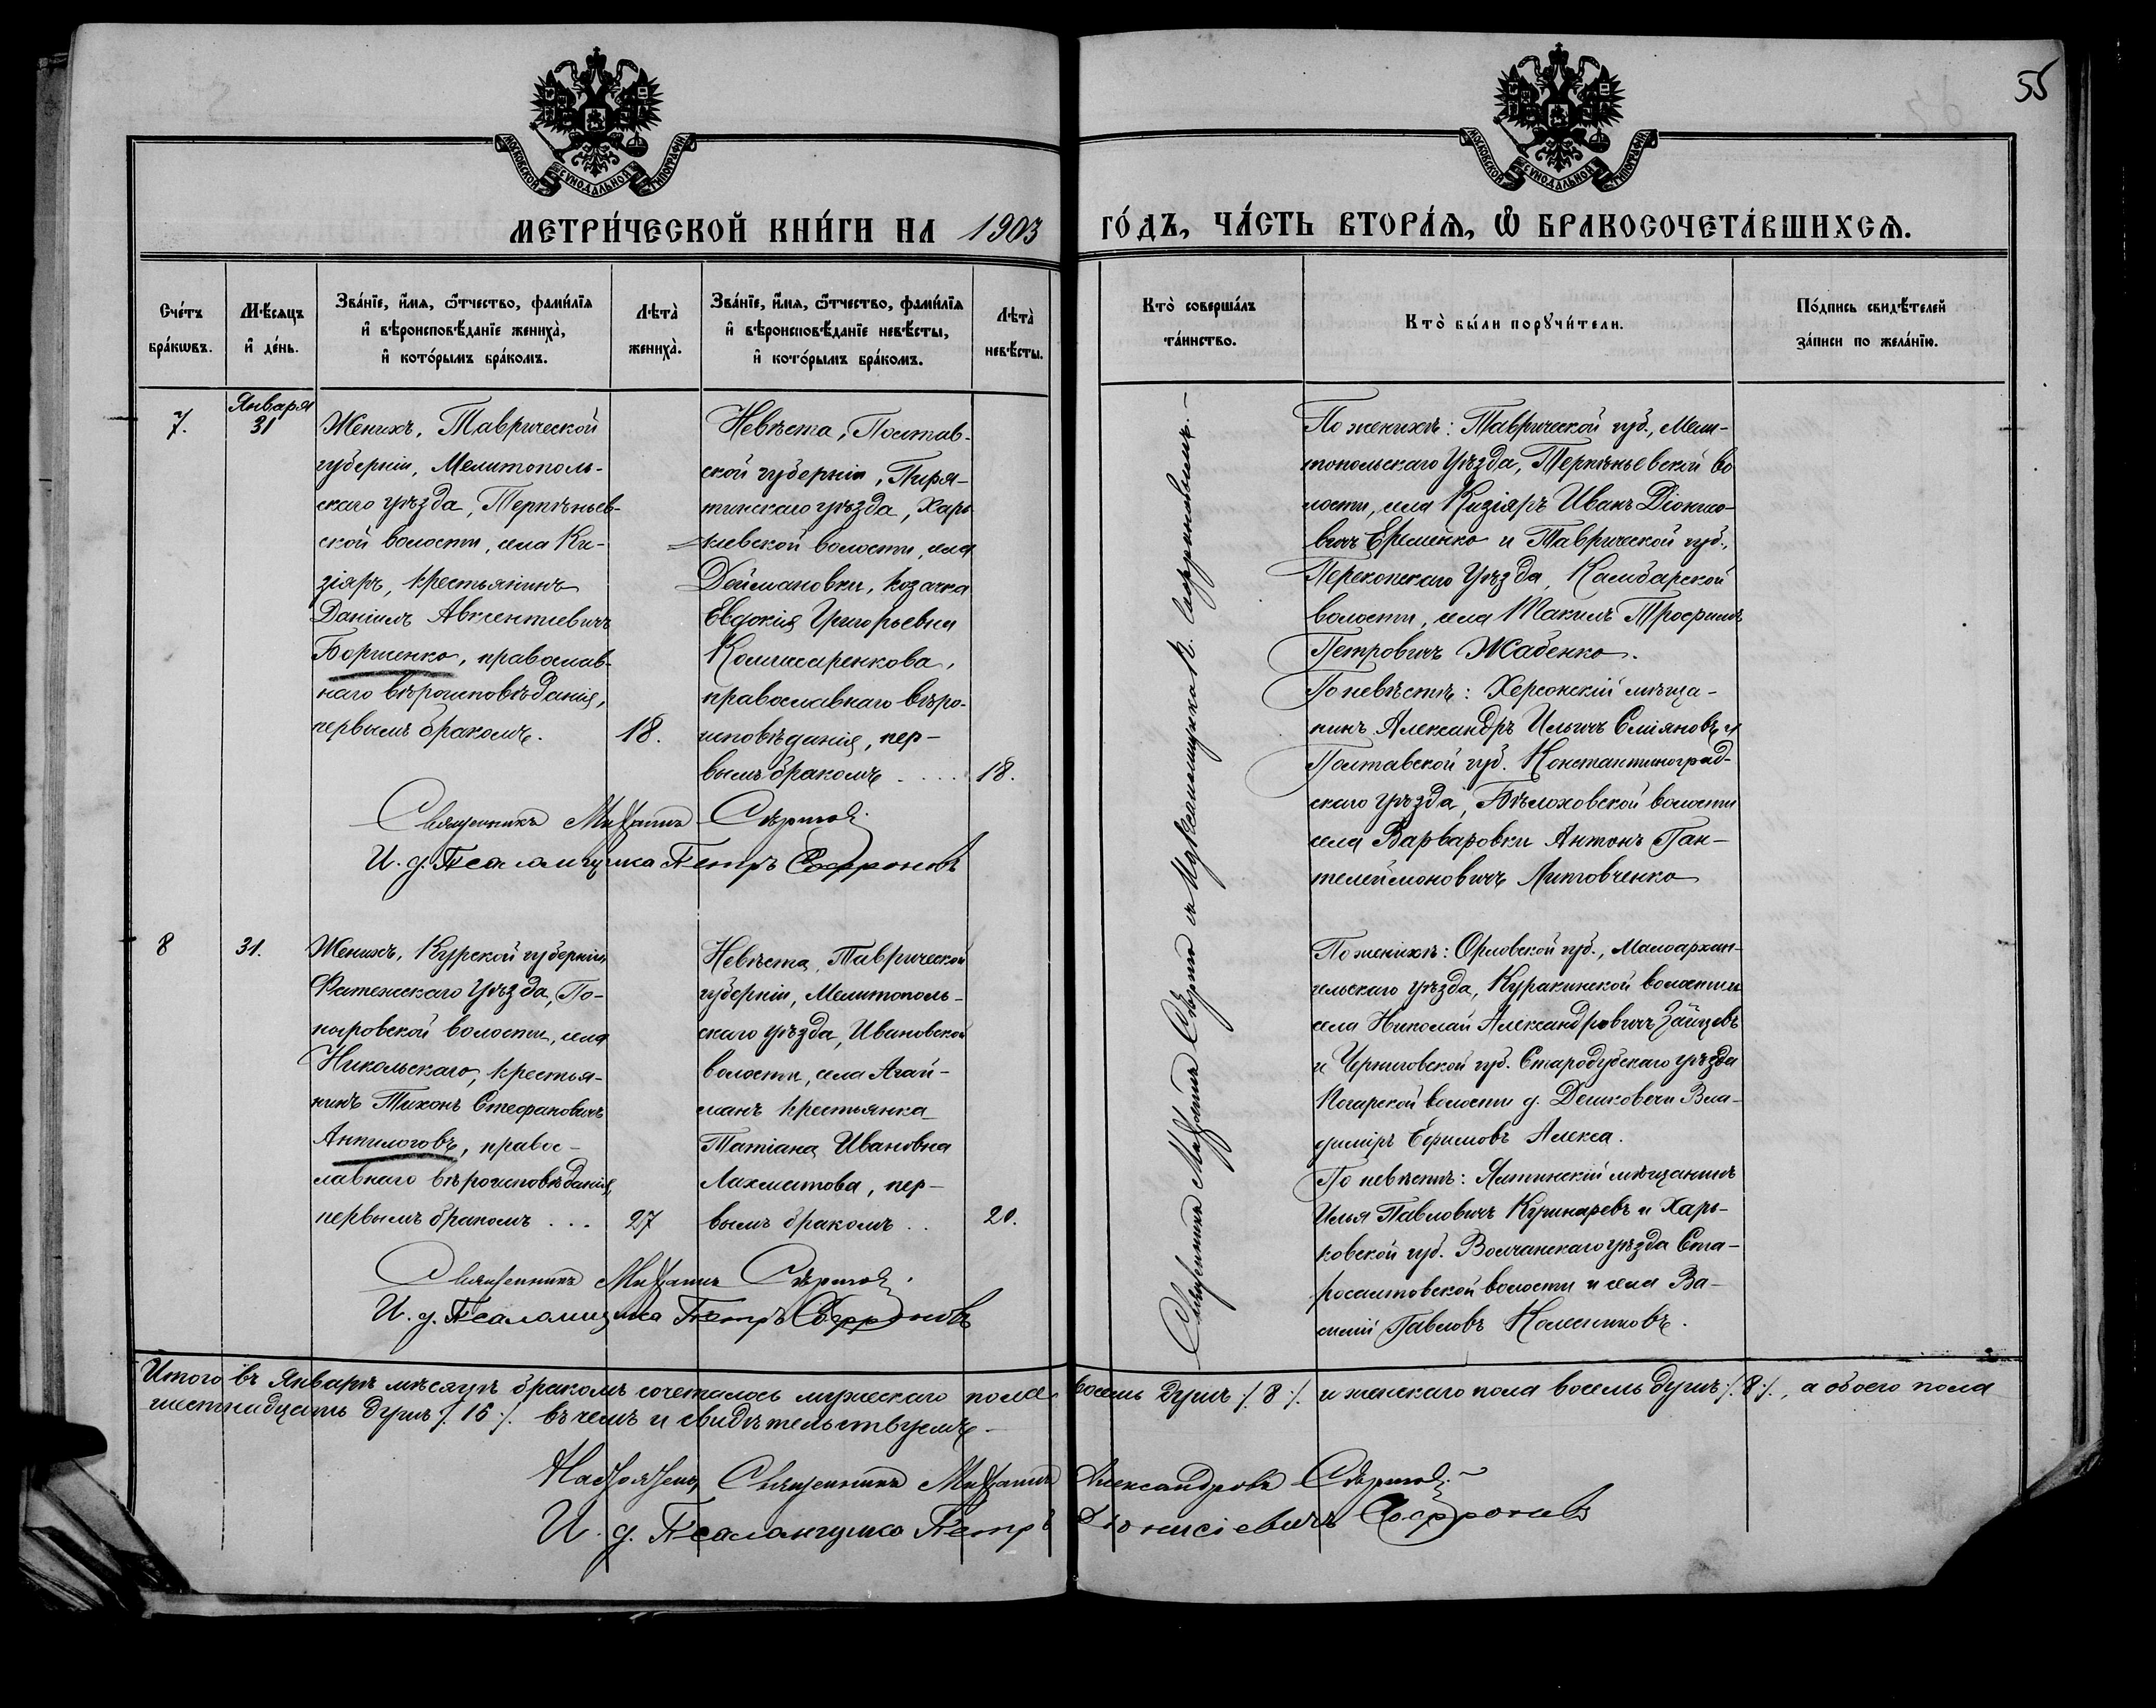 55
МОСКОВСКОЙ СѴНОДАЛЬНОЙ ТИПОГРАФІИ
МОСКОВСКОЙ СѴНОДАЛЬНОЙ ТИПОГРАФІИ
МЕТРИ́ЧЕСКОЙ КНИ́ГИ НА 1903 ГО́ДЪ, ЧА́СТЬ ВТОРА́Я, Ѡ БРАКОСОЧЕТА́ВШИХСЯ.
Сче́тъ
бра́кѡвъ.
Мѣ́сяцъ
и҆ де́нь.
Зва́нїе, и҆́мя, ѻ҆́тчество, фами́лїя
и҆ вѣроисповѣ́данїе женихà,
и҆ кото́рымъ бра́комъ.
Лѣтà
женихà.
Зва́нїе, и҆́мя, ѻ҆́тчество, фами́лїя
и҆ вѣроисповѣ́данїе невѣ́сты,
и҆ кото́рымъ бра́комъ.
Лѣтà
невѣ́сты.
Кто̀ соверша́лъ
та́инство.
Кто̀ бы́ли порꙋчи́тели.
По́дпись свидѣ́телей
за́писи по жела́нїю.
7.
Января
31
Женихъ, Таврической
губерніи, Мелитополь-
скаго уѣзда, Терпѣньев-
ской волости, села Ки-
зіяръ, крестьянинъ
Даніилъ Авксентіевичъ
Борщенко, православ-
наго вѣроисповѣданія,
первымъ бракомъ.
18.
Невѣста, Полтав-
ской губерніи, Пиря-
тинскаго уѣзда, Харь
ковской волости, села
Деймановки, козачка
Евдокія Григорьевна
православнаго вѣро-
исповѣданія, пер-
вымъ бракомъ ....
18.
Священникъ Михаилъ
И. д. Псаломщика Петръ Софроновъ
По женихѣ: Таврической губ., Мели-
топольскаго уѣзда, Терпѣньевской во
лости, села Кизіяръ Иванъ Діонисо-
вичъ Еременко и Таврической губ.,
Перекопскаго уѣзда,
волости, села Такилъ Трофимъ
Петровичъ Жабенко.
По невѣстѣ: Херсонскій мѣща-
нинъ Александръ Ильичъ и
Полтавской губ. Константиноград-
скаго уѣзда, волости
села Варваровки Антонъ Пан-
телеймоновичъ Литовченко
8
31.
Женихъ, Курской губерніи
Фатежскаго уѣзда, По-
ныровской волости, села
Никольскаго, крестья-
нинъ Тихонъ Стефановичъ
Анпилоговъ, правос-
лавнаго вѣроисповѣданія,
первымъ бракомъ ...
27
Невѣста, Таврической
губерніи, Мелитополь-
скаго уѣзда, Ивановской
волости, села Агай-
манъ крестьянка
Татіана Ивановна
Лахматова, пер-
вымъ бракомъ ..
20.
Священникъ Михаилъ
И. д. Псаломщика Петръ Софроновъ
По женихѣ: Орловской губ., Малоархан-
гельскаго уѣзда, Куракинской волости и
села Николай Александровичъ Зайцевъ
и Черниговской губ. Стародубскаго уѣзда
Погарской волости д. Вла-
диміръ Ефимовъ Алекса.
По невѣстѣ: Ялтинскій мѣщанинъ
Илья Павловичъ и Харь-
ковской губ. Волчанскаго уѣзда Ста-
росалтовской волости и села Ва-
силій Павловъ Колесниковъ.
Священникъ Михаилъ
Итого въ Январѣ мѣсяцѣ бракомъ сочеталось мужескаго пола восемь душъ ./. 8 ./. и женскаго пола восемь душъ ./. 8 ./., а обоего пола
шестнадцать душъ ./. 16 ./. въ чемъ и свидѣтельствуемъ.
Священникъ Михаилъ Александровъ
И. д. Псаломщика Петръ Діонисіевичъ Софроновъ